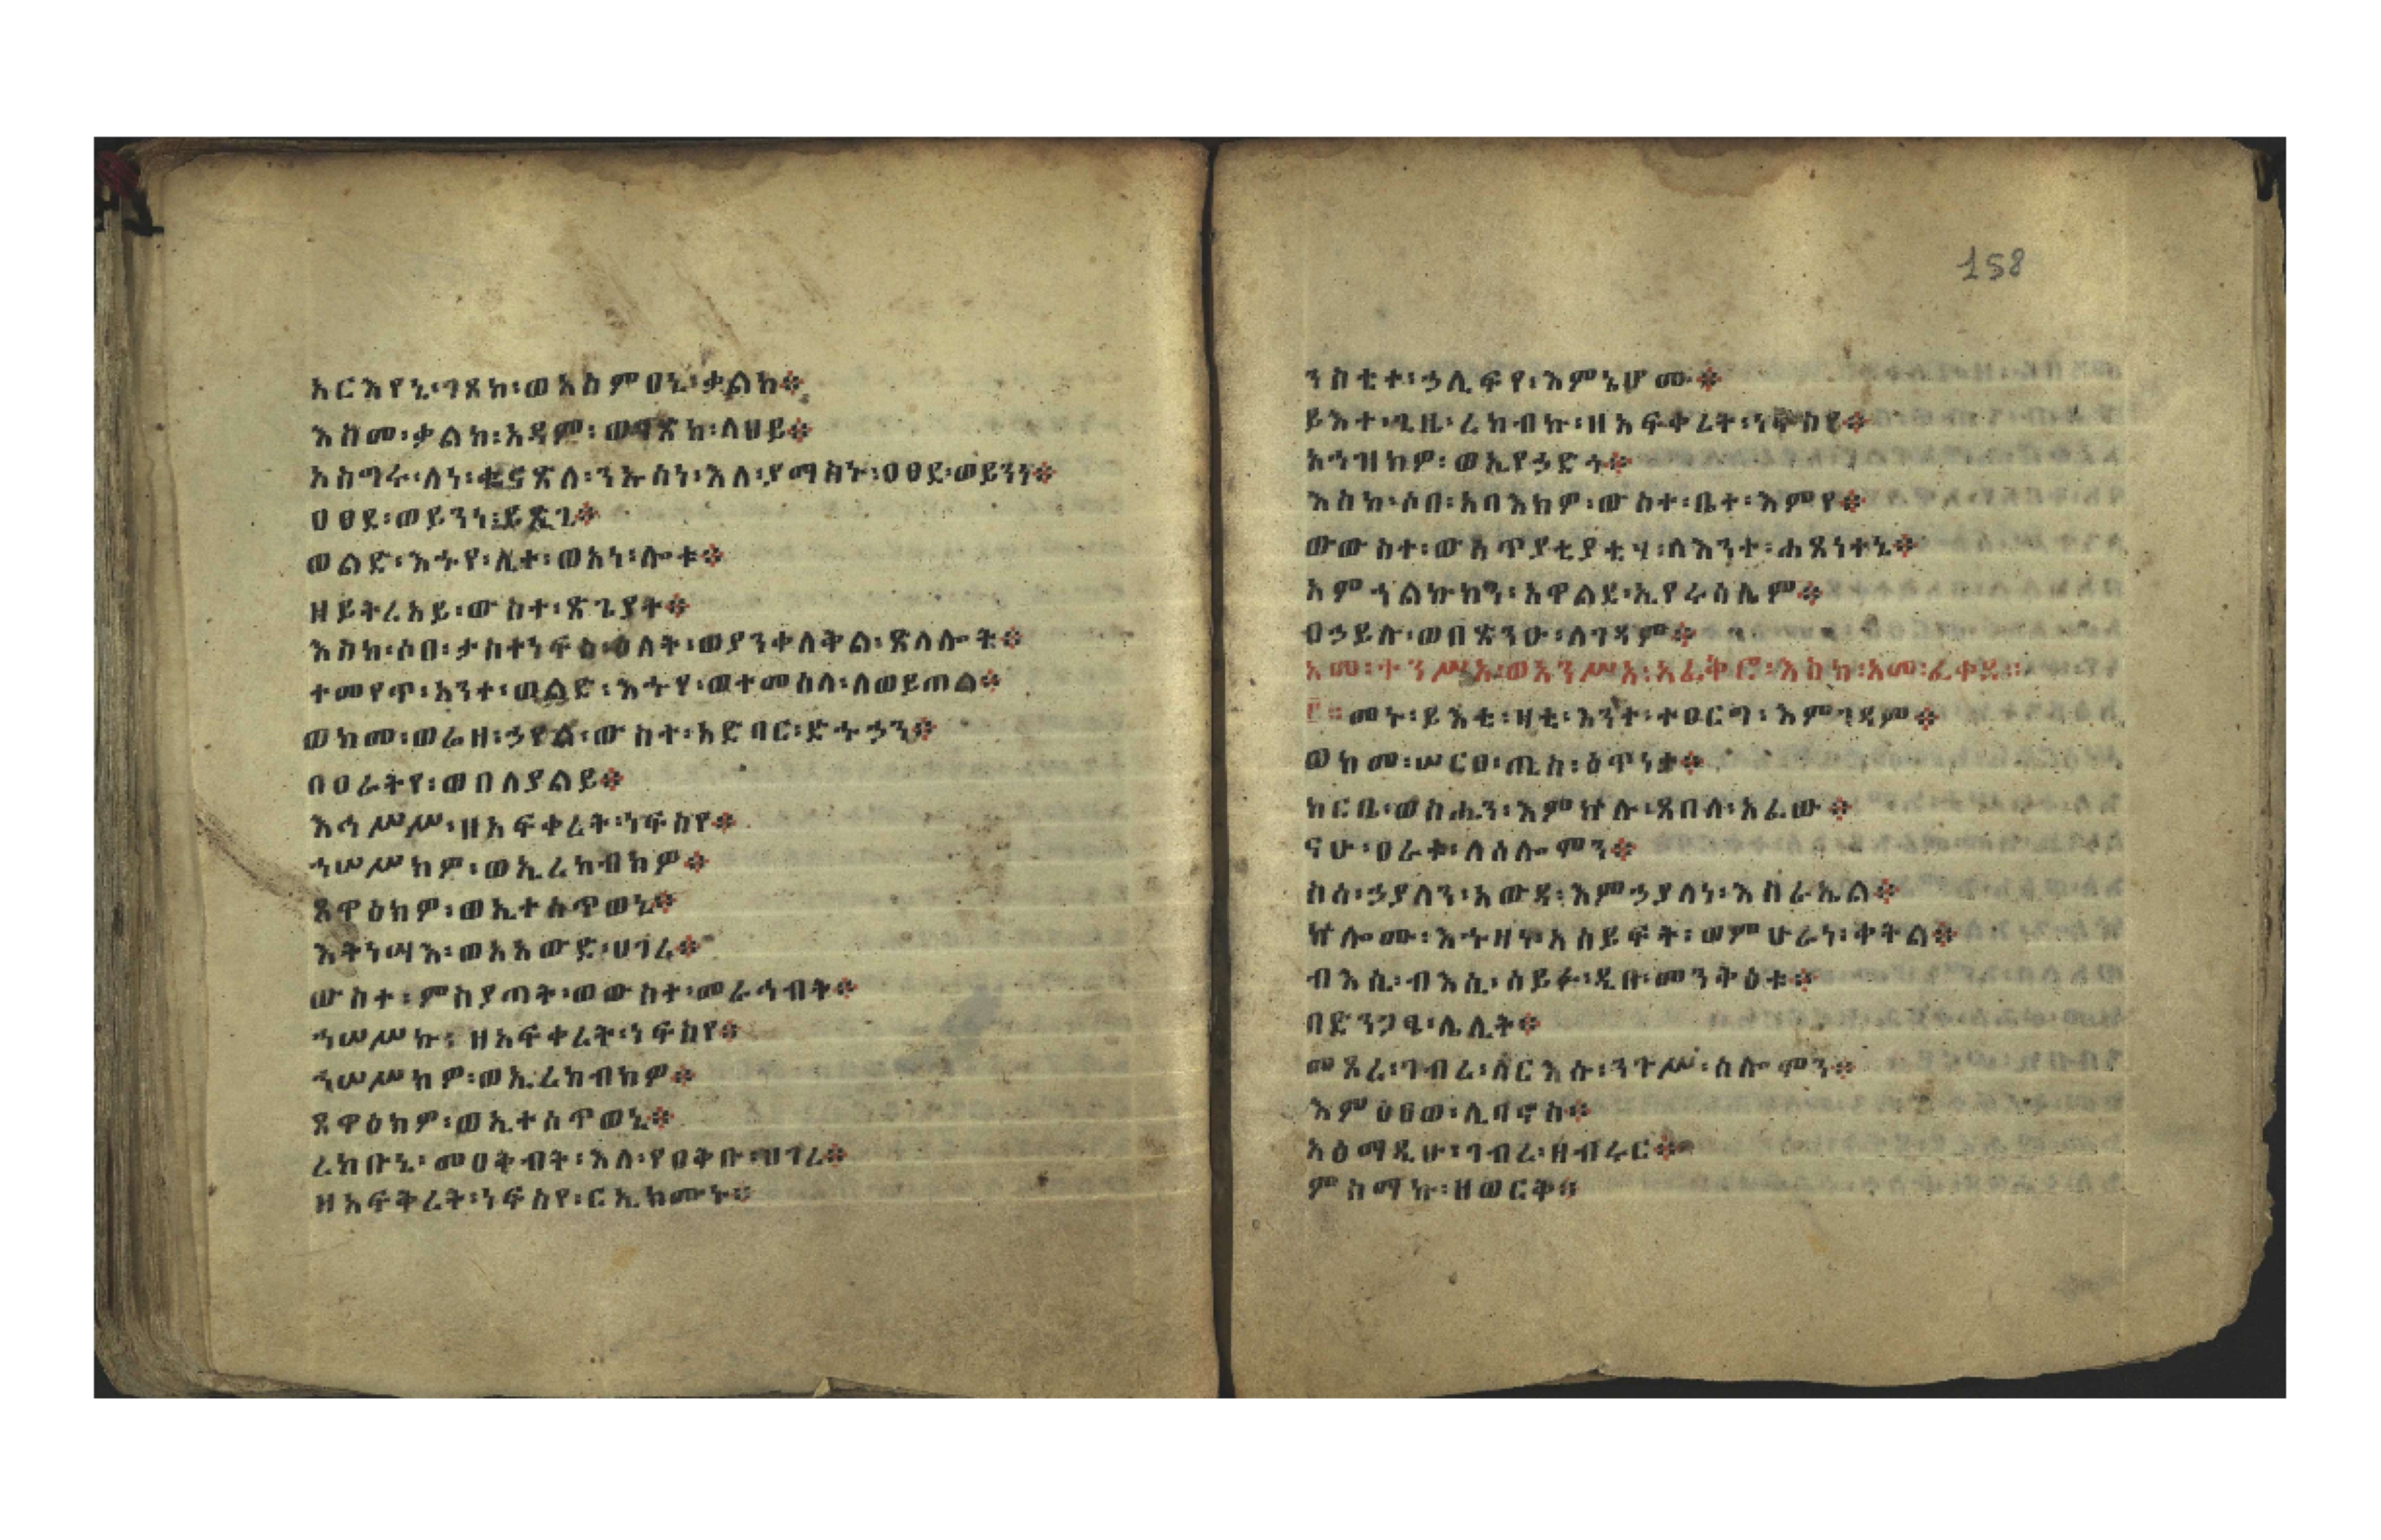 አርእየኒ፡ገጸከ፡ወአስምዐኒ፡ቃልከ፨
እስመ፡ቃልከ፡አዳም፡ወገጽከ፡ላህይ፨
አስግሩ፡ለነ፡ቈናጽለ፡ንኡሰነ፡እለ፡ያማስኑ፡ዐፀደ፡ወይንነ፨
ዐፀደ፡ወይንነ፡ይጼጊ፨
ወልድ፡እኅየ፡ሊተ፡ወአነ፡ሎቱ፨
ዘይትረአይ፡ውስተ፡ጽጌያት፨
እስከ፡ሶበ፡ታስተነፍስ፡ዕለት፡ወያንተለትል፡ጽላሎት፨
ተመየጥ፡አንተ፡ወልድ፡እኅየ፡ወተመሰላ፡ለወይጠል፨
ወከመ፡ወሬዛ፡ኃየል፡ውስተ፡አድባር፡ድኁኃን፨
በዐራትየ፡ወበለያልይ፨
እኅሥሥ፡ዘአፍቀረት፡ነፍስየ፨
ኀሠሥክዎ፡ወኢረከብክዎ፨
ጸዋዕክዎ፡ወኢተሰጥወኒ፨
እትነሣእ፡ወአአውድ፡ሀገረ፨
ውስተ፡ምስያጣት፡ወውስተ፡መራኅብት፨
ኀሠሥኩ፡ዘአፍቀረት፡ነፍስየ፨
ኀሠሥክዎ፡ወኢረከብክዎ፨
ጸዋዕክዎ፡ወኢተሰጥወኒ፨
ረከቡኒ፡መዐቅብት፡እለ፡የዐቅቡ፡ሀገረ፨
ዘአፍቅረት፡ነፍስየ፡ርኢክሙኑ፨
158
ንስቲተ፡ኃሊፍየ፡እምኔሆሙ፨
ይእተ፡ጊዜ፡ረከብኩ፡ዘአፍቀረት፡ነፍስየ፨
አኀዝክዎ፡ወኢየኃድጎ፨
እስከ፡ሶበ፡አባእክዎ፡ውስተ፡ቤተ፡እምየ፨
ውውስተ፡ውሳጥያቲያቲሃ፡ለእንተ፡ሐጸነተኒ፨
አምኀልኩክን፡አዋልደ፡ኢየሩሳሌም፨
በኃይሉ፡ወበጽንዑ፡ለገዳም፨
እመ፡ተንሥአ፡ወአንሥአ፡አፈቅሮ፡እስከ፡አመ፡ፈቀደ።
መኑ፡ይእቲ፡ዛቲ፡እንተ፡ተዐርግ፡እምገዳም፨
ወከመ፡ሠርፀ፡ጢስ፡ዕጥነታ፨
ከርቤ፡ወስሒን፡እምኵሉ፡ጸበለ፡አፈው፨
ናሁ፡ዐራቱ፡ለሰሎሞን፨
ስሳ፡ኃያላን፡አውዳ፡እምኃያላነ፡እስራኤል፨
ኵሎሙ፡እኁዛነ፡አስይፍት፡ወምሁራነ፡ቀትል፨
ብእሲ፡ብእሲ፡ሰይፉ፡ዲበ፡መንትዕቱ፨
በድንጋፄ፡ሌሊት፨
መጾረ፡ገብረ፡ለርእሱ፡ንጉሥ፡ሰሎሞን፨
እምዕፀወ፡ሊባኖስ፨
አዕማዲሁ፡ገብረ፡ዘብሩር፨
ምስማኩ፡ዘወርቅ።